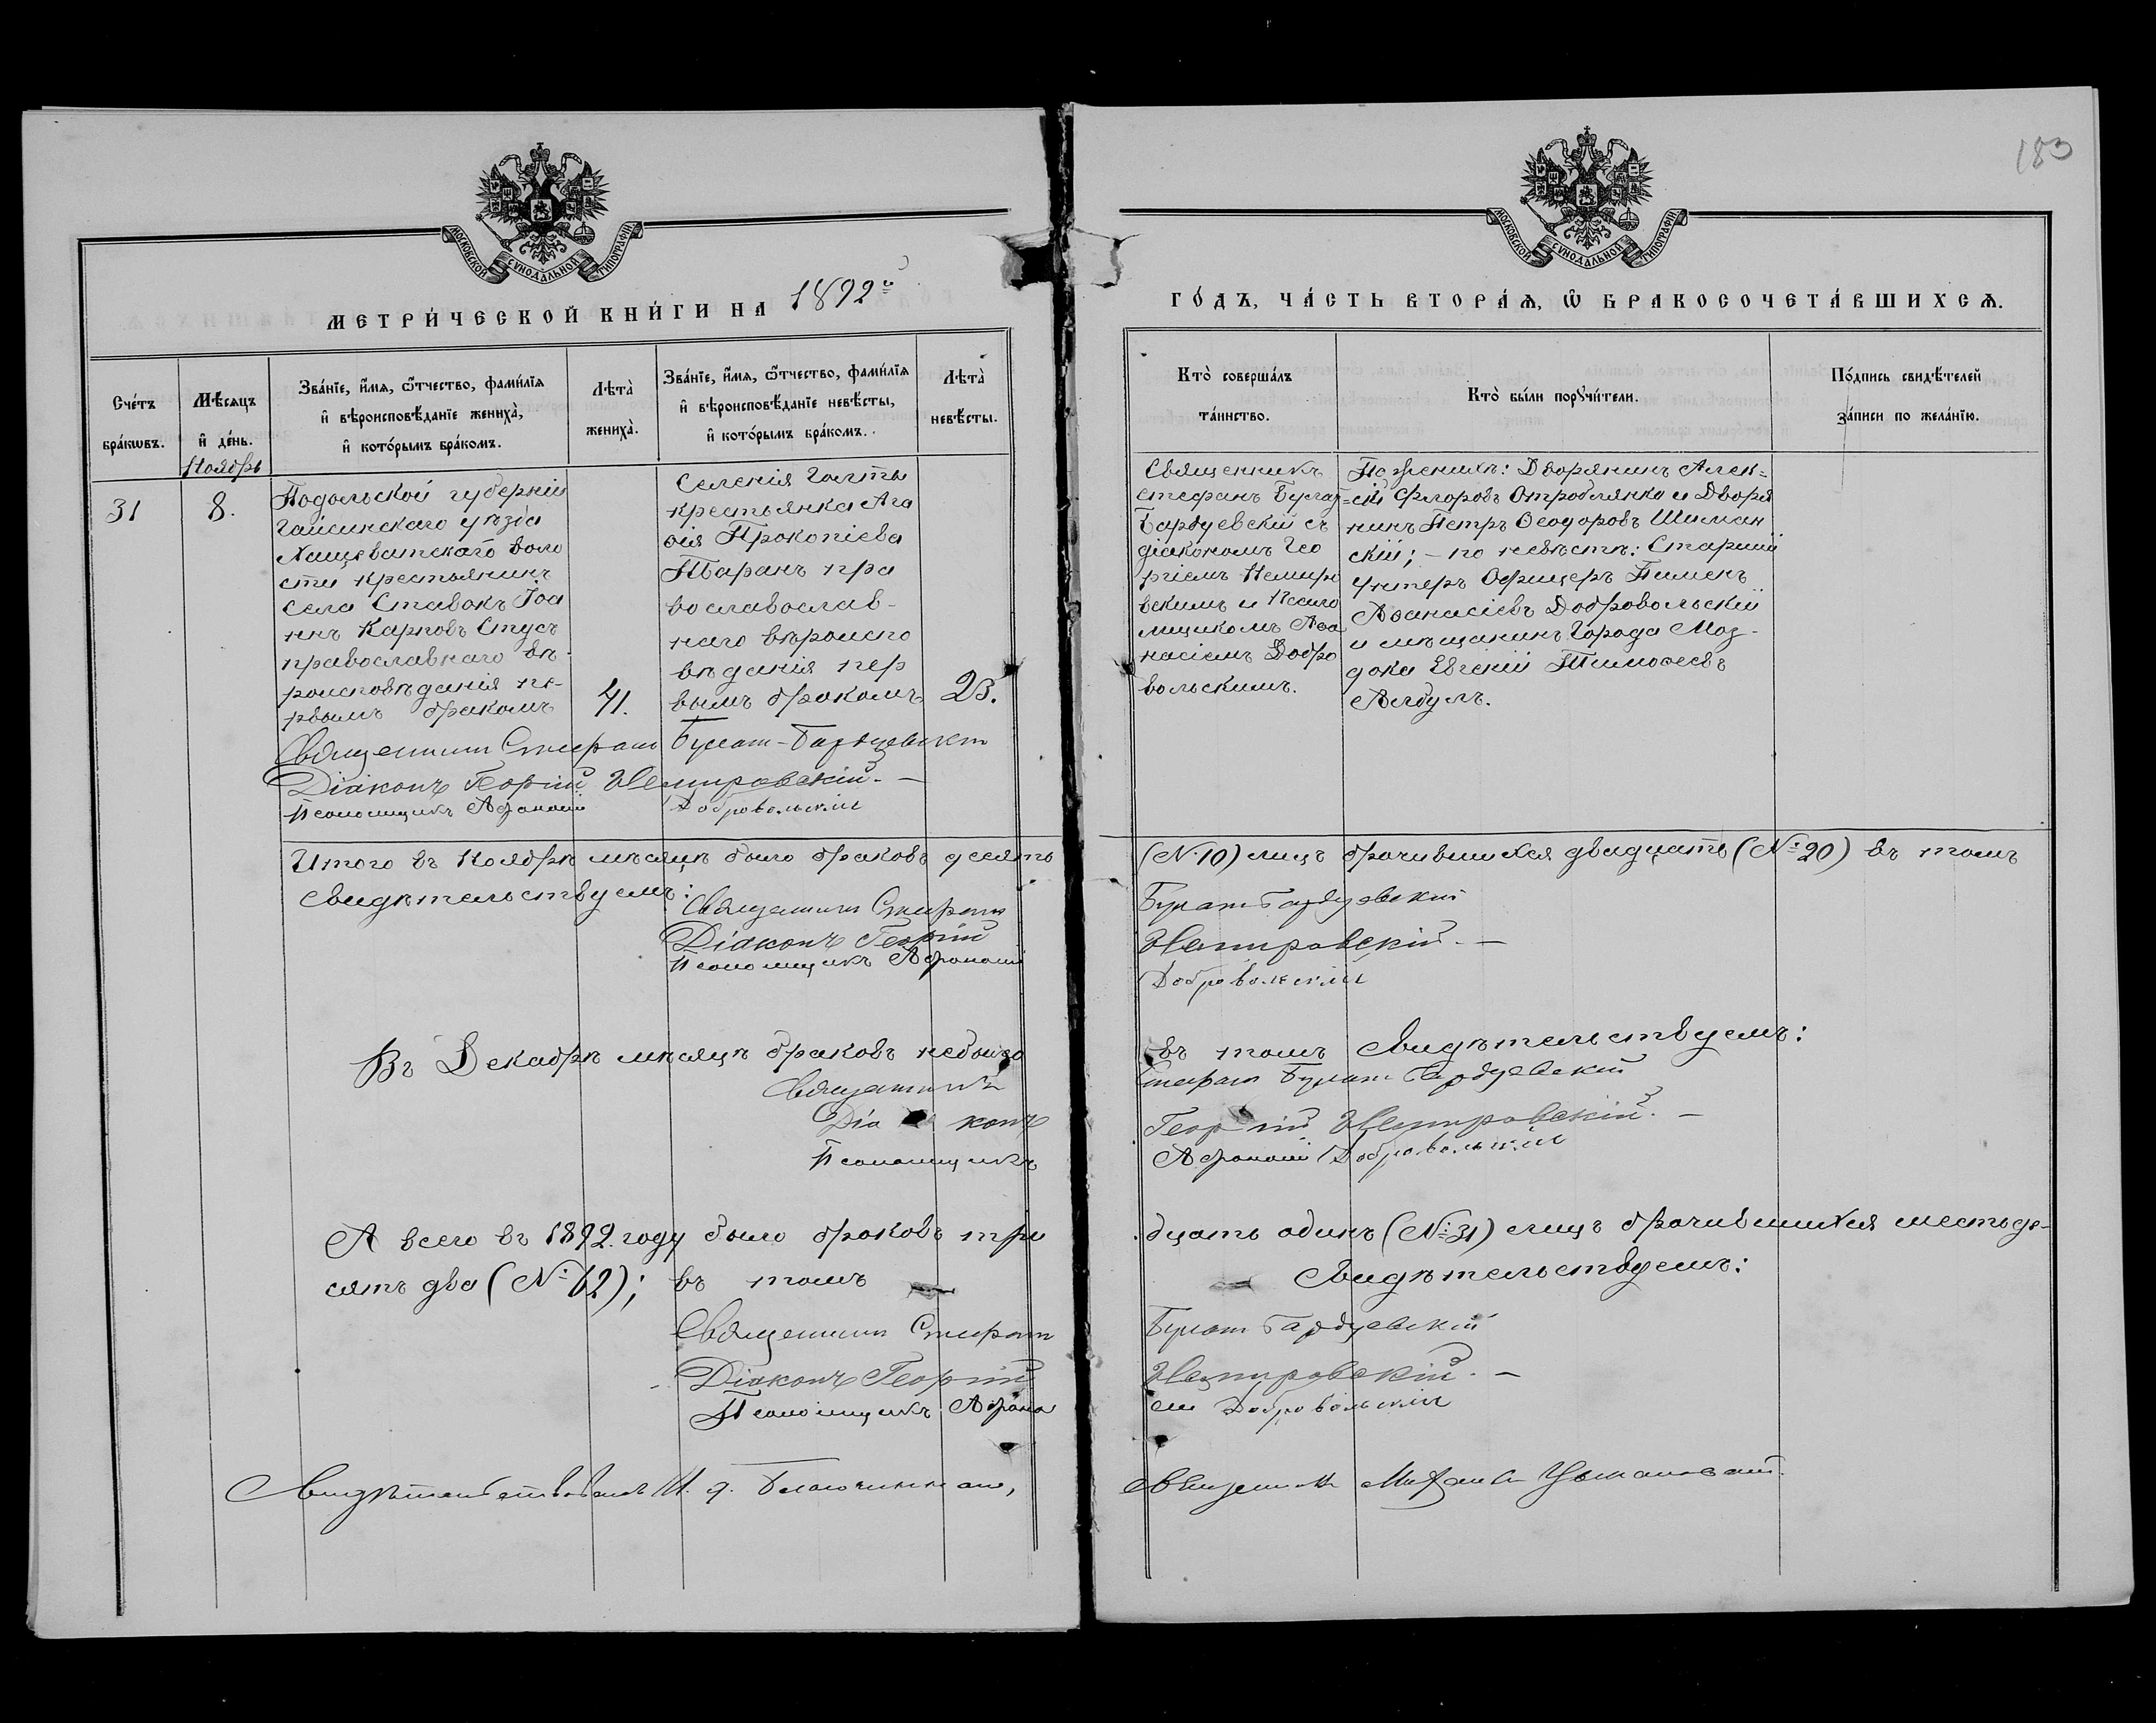 183
МОСКОВСКОЙ СѴНОДАЛЬНОЙ ТИПОГРАФІИ
МОСКОВСКОЙ СѴНОДАЛЬНОЙ ТИПОГРАФІИ
МЕТРИ́ЧЕСКОЙ КНИ́ГИ НА 1892й
ГО́ДЪ, ЧА́СТЬ ВТОРА́Ѧ, Ѡ҆ БРАКОСОЧЕТА́ВШИХСѦ.
Сче́тъ
бра́кѡвъ.
Мѣ́сѧцъ
и҆ де́нь.
Зва́нїе, и҆́мѧ, ѻ҆́тчество, фами́лїѧ
и҆ вѣроисповѣ́данїе жениха̀,
и҆ кото́рымъ бра́комъ.
Лѣта̀
жениха̀.
Зва́нїе, и҆́мѧ, ѻ҆́тчество, фами́лїѧ
и҆ вѣроисповѣ́данїе невѣ́сты,
и҆ кото́рымъ бра́комъ.
Лѣта̀
невѣ́сты.
Кто̀ соверша́лъ
та́инство.
Кто̀ бы́ли порꙋчи́тели.
По́дпись свидѣ́телей
за́писи по жела́нїю.
Ноябрь
31
8.
Подольской губерніи
Гайсинскаго уѣзда
Хащеватскаго воло
сти крестьянинъ
села Ставокъ Іоа
ннъ Карповъ Стусъ
православнаго вѣ-
роисповѣданія пе-
рвымъ бракомъ
41.
Селенія Галты
крестьянка Ага
ѳія Прокопіева
Таранъ пра
вославослав-
наго вѣроиспо
вѣданія пер
вымъ бракомъ
23.
Священникъ
Стефанъ Булат
Бардуевскій съ
діакономъ Гео
ргіемъ Немиро
вскимъ и Псало
мщикомъ Аѳа
насіемъ Добро
вольскимъ.
По женихѣ: Дворянинъ Алек=
=сѣй Флоровъ Отроблянко и Дворя
нинъ Петръ Ѳеодоровъ Шиман
скій; – по невѣстѣ: Старшій
Унтеръ Офицеръ Пименъ
Аѳанасіевъ Добровольскій
и мѣщанинъ города Моз-
дока Евгеній Тимоѳеевъ
Священникъ Стефанъ Булат-Бардуевскій
Діаконъ Георгій Немировскій. –
Псаломщикъ Афанасій Добровольскій
Итого въ Ноябрѣ мѣсяцѣ было браковъ десять (№ 10) лицъ брачившихся двадцать (№ 20) въ томъ
свидѣтельствуемъ:
Священникъ Стефанъ Булат Бардуевскій
Діаконъ Георгій Немировскій. –
Псаломщикъ Афанасій Добровольскій
Въ Декабрѣ мѣсяцѣ браковъ небыло въ томъ свидѣтельствуемъ:
Священникъ Стефанъ Булат Бардуевскій
Діаконъ Георгій Немировскій. –
Псаломщикъ Афанасій Добровольскій
А всего въ 1892 году было браковъ три дцать одинъ (№ 31) лицъ брачившихся шестьде-
сятъ два (№ 62); въ томъ свидѣтельствуемъ:
Священникъ Стефанъ Булат Бардуевскій
Діаконъ Георгій Немировскій. –
Псаломщикъ Афана сій Добровольскій
Свидѣтельствовалъ И. д. Благочиннаго, Священникъ